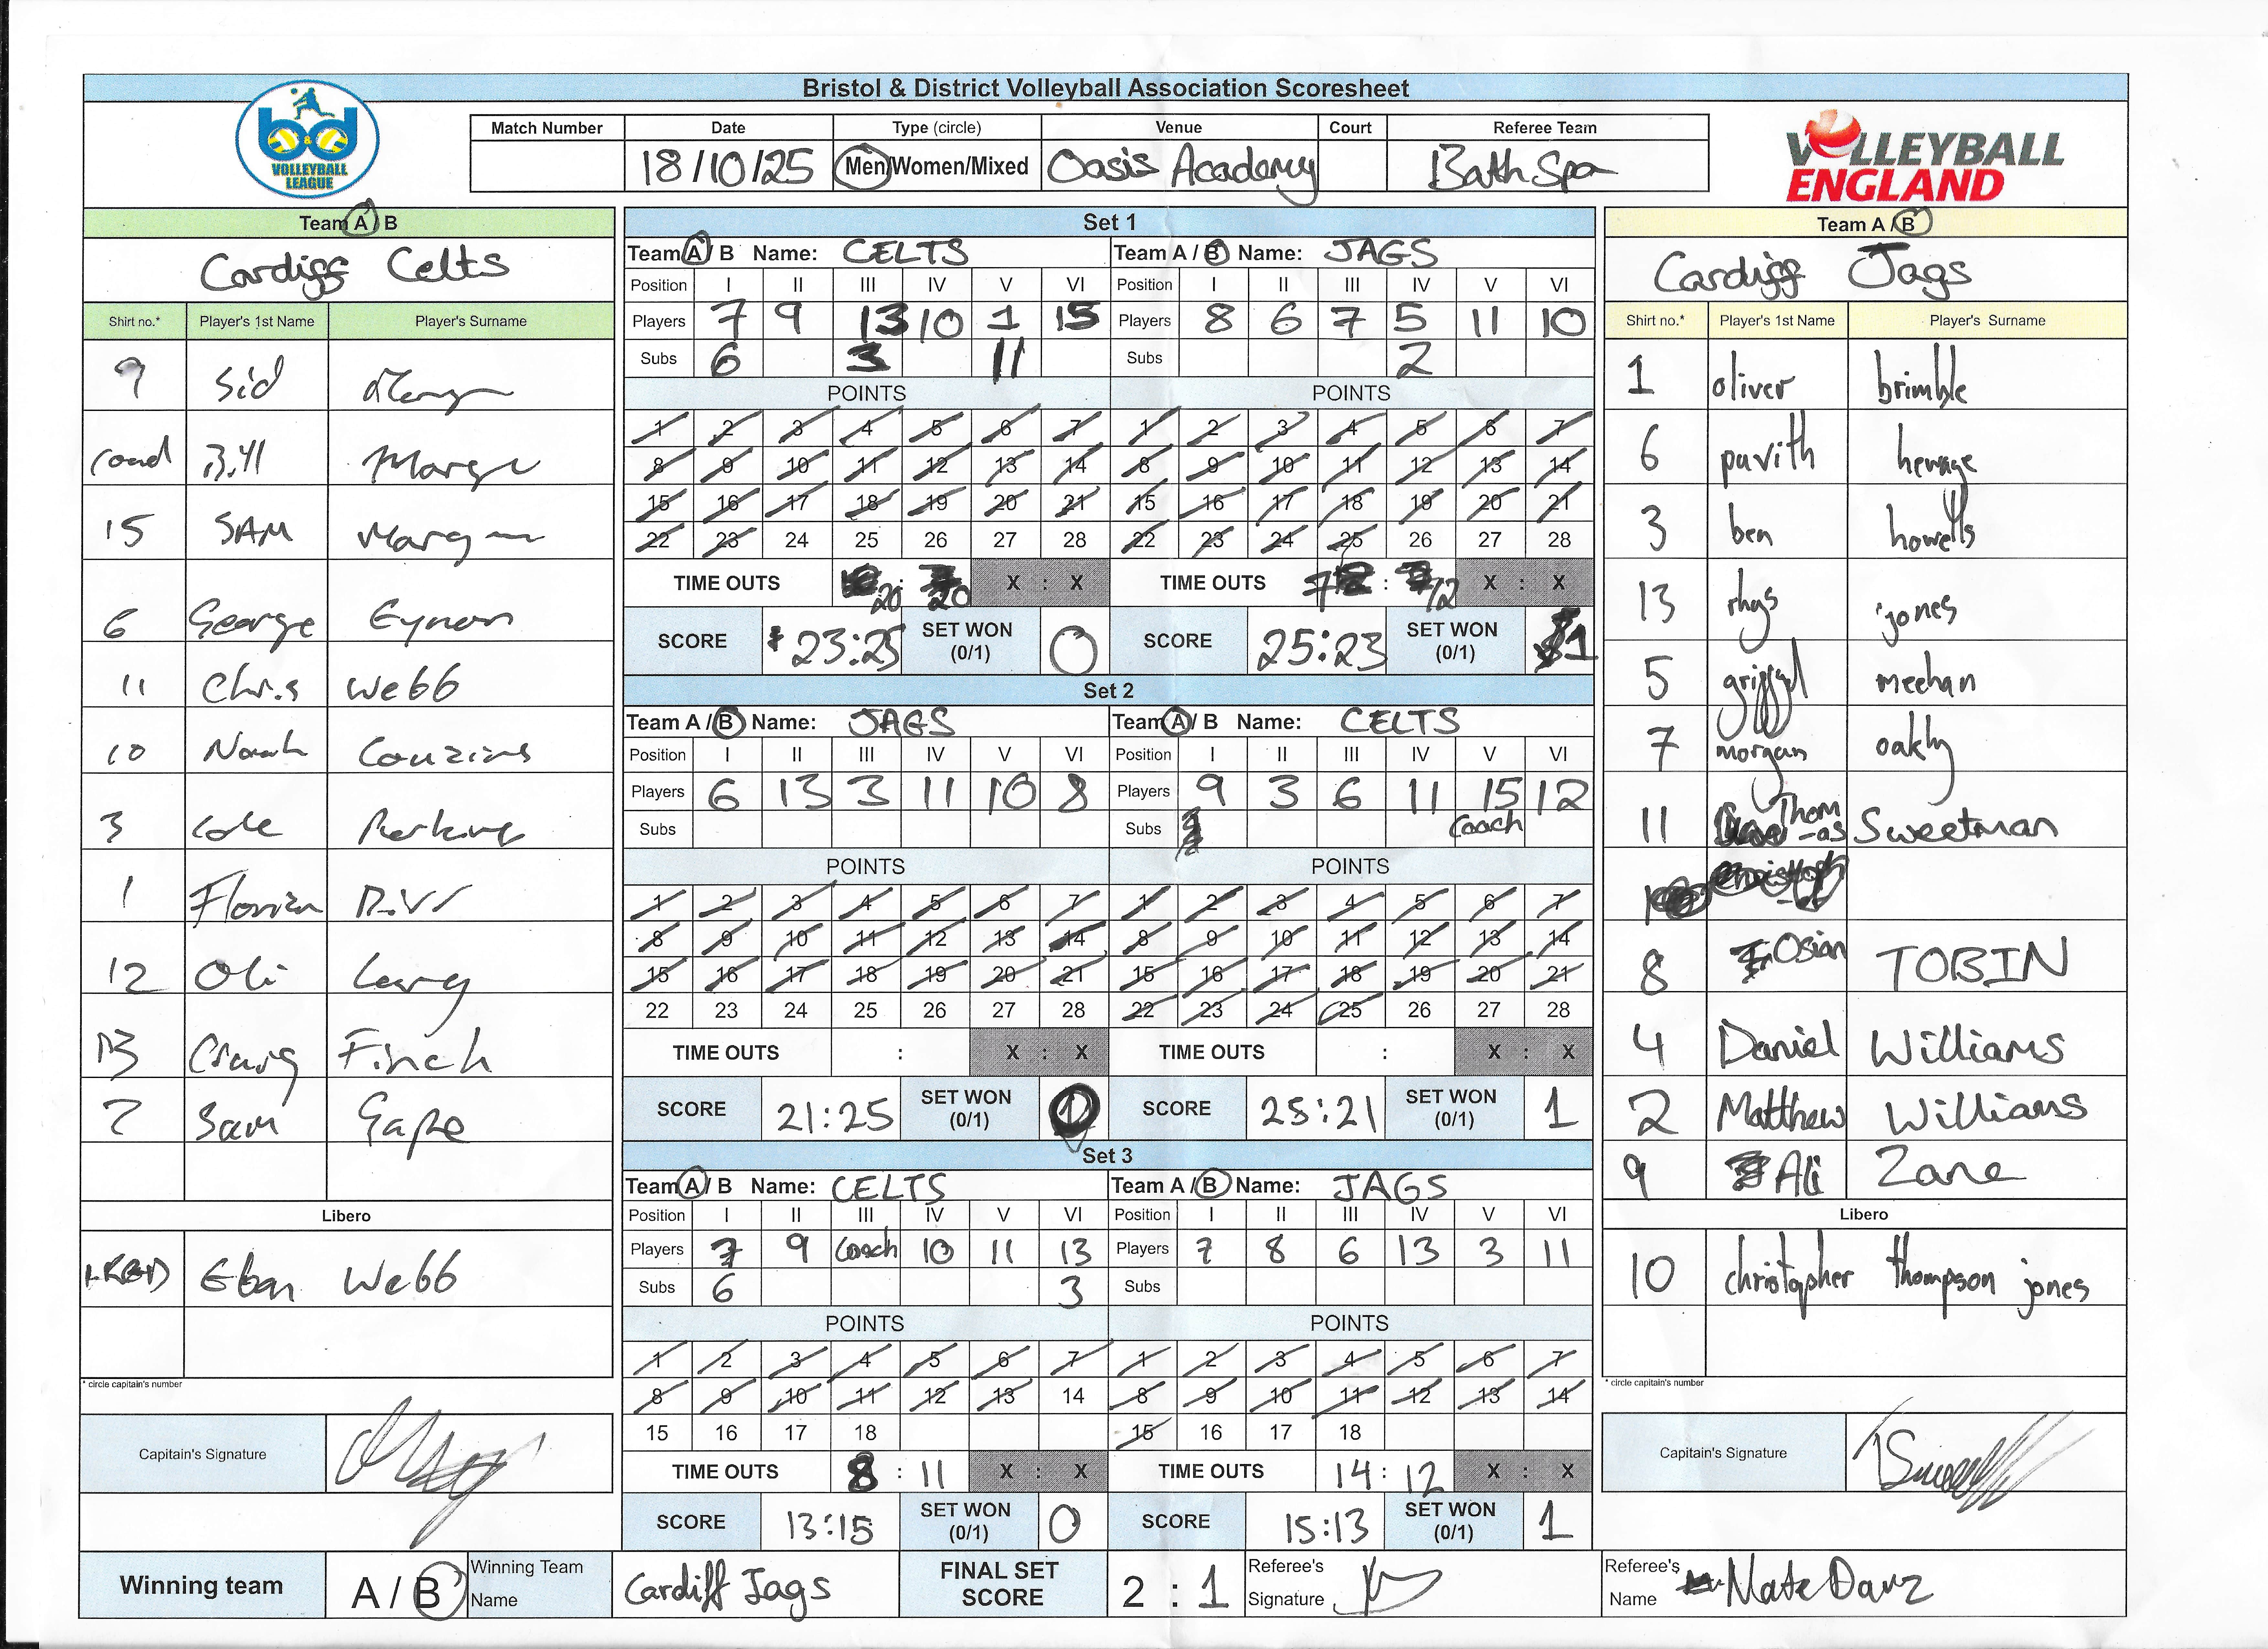 Bristol & District Volleyball Association Scoresheet
bd VOLLEYBALL LEAGUE
VOLLEYBALL ENGLAND
Match Number Date Type (circle) Venue Court Referee Team
18/10/25 Men/Women/Mixed Oasis Academy Bath Spa
Team A / B
Cardiff Celts
Shirt no.* Player's 1st Name Player's Surname
9 Sid
B.11
15 SAM Morgan
6 George Eynon
11 Chris Webb
10 Noah Couzins
3 Cole Perkins
1 Florian
12 Oli
13 Craig Finch
Sam Gape
Libero
Eban Webb
* circle capitain's number
Capitain's Signature
Set 1
Team A / B Name: CELTS Team A / B Name: JAGS
Position I II III IV V VI Position I II III IV V VI
Players 7 9 13 10 1 15 Players 8 6 7 5 11 10
Subs 6 3 11 Subs 2
POINTS POINTS
1 2 3 4 5 6 7 1 2 3 4 5 6 7
8 9 10 11 12 13 14 8 9 10 11 12 13 14
15 16 17 18 19 20 21 15 16 17 18 19 20 21
22 23 24 25 26 27 28 22 23 24 25 26 27 28
TIME OUTS 20 : 20 X : X TIME OUTS 7 : 12 X : X
SCORE 23:25 SET WON (0/1) 0 SCORE 25:23 SET WON (0/1) 1
Set 2
Team A / B Name: JAGS Team A / B Name: CELTS
Position I II III IV V VI Position I II III IV V VI
Players 6 13 3 11 10 8 Players 9 3 6 11 15 12
Subs Subs Coach
POINTS POINTS
1 2 3 4 5 6 7 1 2 3 4 5 6 7
8 9 10 11 12 13 14 8 9 10 11 12 13 14
15 16 17 18 19 20 21 15 16 17 18 19 20 21
22 23 24 25 26 27 28 22 23 24 25 26 27 28
TIME OUTS : X : X TIME OUTS : X : X
SCORE 21:25 SET WON (0/1) 0 SCORE 25:21 SET WON (0/1) 1
Set 3
Team A / B Name: CELTS Team A / B Name: JAGS
Position I II III IV V VI Position I II III IV V VI
Players 7 9 Coach 10 11 13 Players 7 8 6 13 3 11
Subs 6 3 Subs
POINTS POINTS
1 2 3 4 5 6 7 1 2 3 4 5 6 7
8 9 10 11 12 13 14 8 9 10 11 12 13 14
15 16 17 18 15 16 17 18
TIME OUTS 8 : 11 X : X TIME OUTS 14 : 12 X : X
SCORE 13:15 SET WON (0/1) 0 SCORE 15:13 SET WON (0/1) 1
Team A / B
Cardiff Jags
Shirt no.* Player's 1st Name Player's Surname
1 oliver brimble
6 pavith hewage
3 ben howells
13 rhys jones
5 meehan
7 morgan oakly
11 Thom-as Sweetman
8 Osian TOBIN
4 Daniel Williams
2 Matthew Williams
9 Ali Zane
Libero
10 christopher thompson jones
* circle capitain's number
Capitain's Signature
Winning team A / B Winning Team Name Cardiff Jags FINAL SET SCORE 2 : 1 Referee's Signature Referee's Name Nate